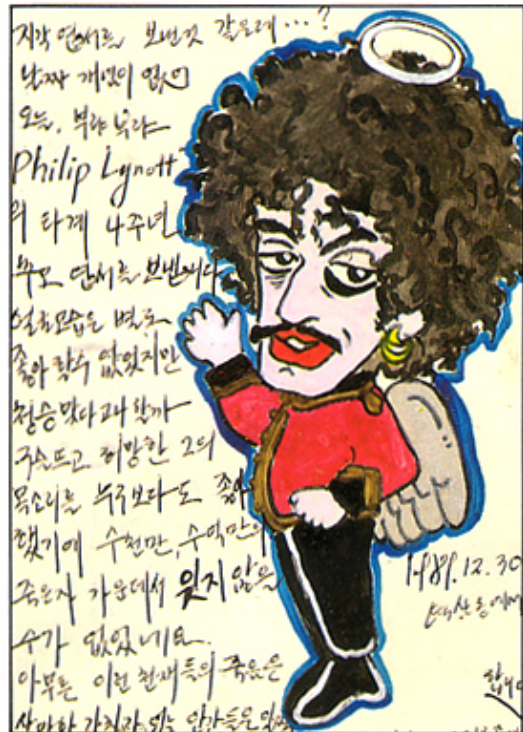 지각 엽서를 보낸것 같은데...?
날짜 개념이 없이
오늘, 부랴 부랴
Philip Lynott
의 타계 4주년
추모 엽서를 보냅니다
얼굴모습은 별로
좋아 할수 없었지만
청승맞다고나 할까
구슬프고 허망한 그의
목소리를 누구보다도 좋아
했기에 수천만, 수억만의
죽은자 가운데서 잊지 않을
수가 없었네요.
아무튼 이런 천재들의 죽음은
1989.12.30
합니다